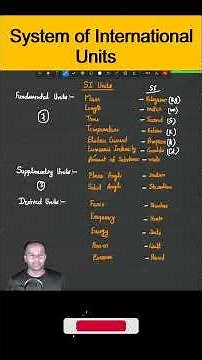 System of International
Units
SI Units
SI
Fundamental Units:-
Mass - Kilogram (Kg)
Length - meter (m)
Time - Second (S)
Temperature - Kelvin (K)
Electric Current - Ampere (A)
Luminous Intensity - Candela (Cd)
Amount of Substance - mole
Supplementary Units:-
Plane Angle - radian
Solid Angle - Steradian
Derived Units:-
Force - Newton
Frequency - Hertz
Energy - Joule
Power - Watt
Pressure - Pascal